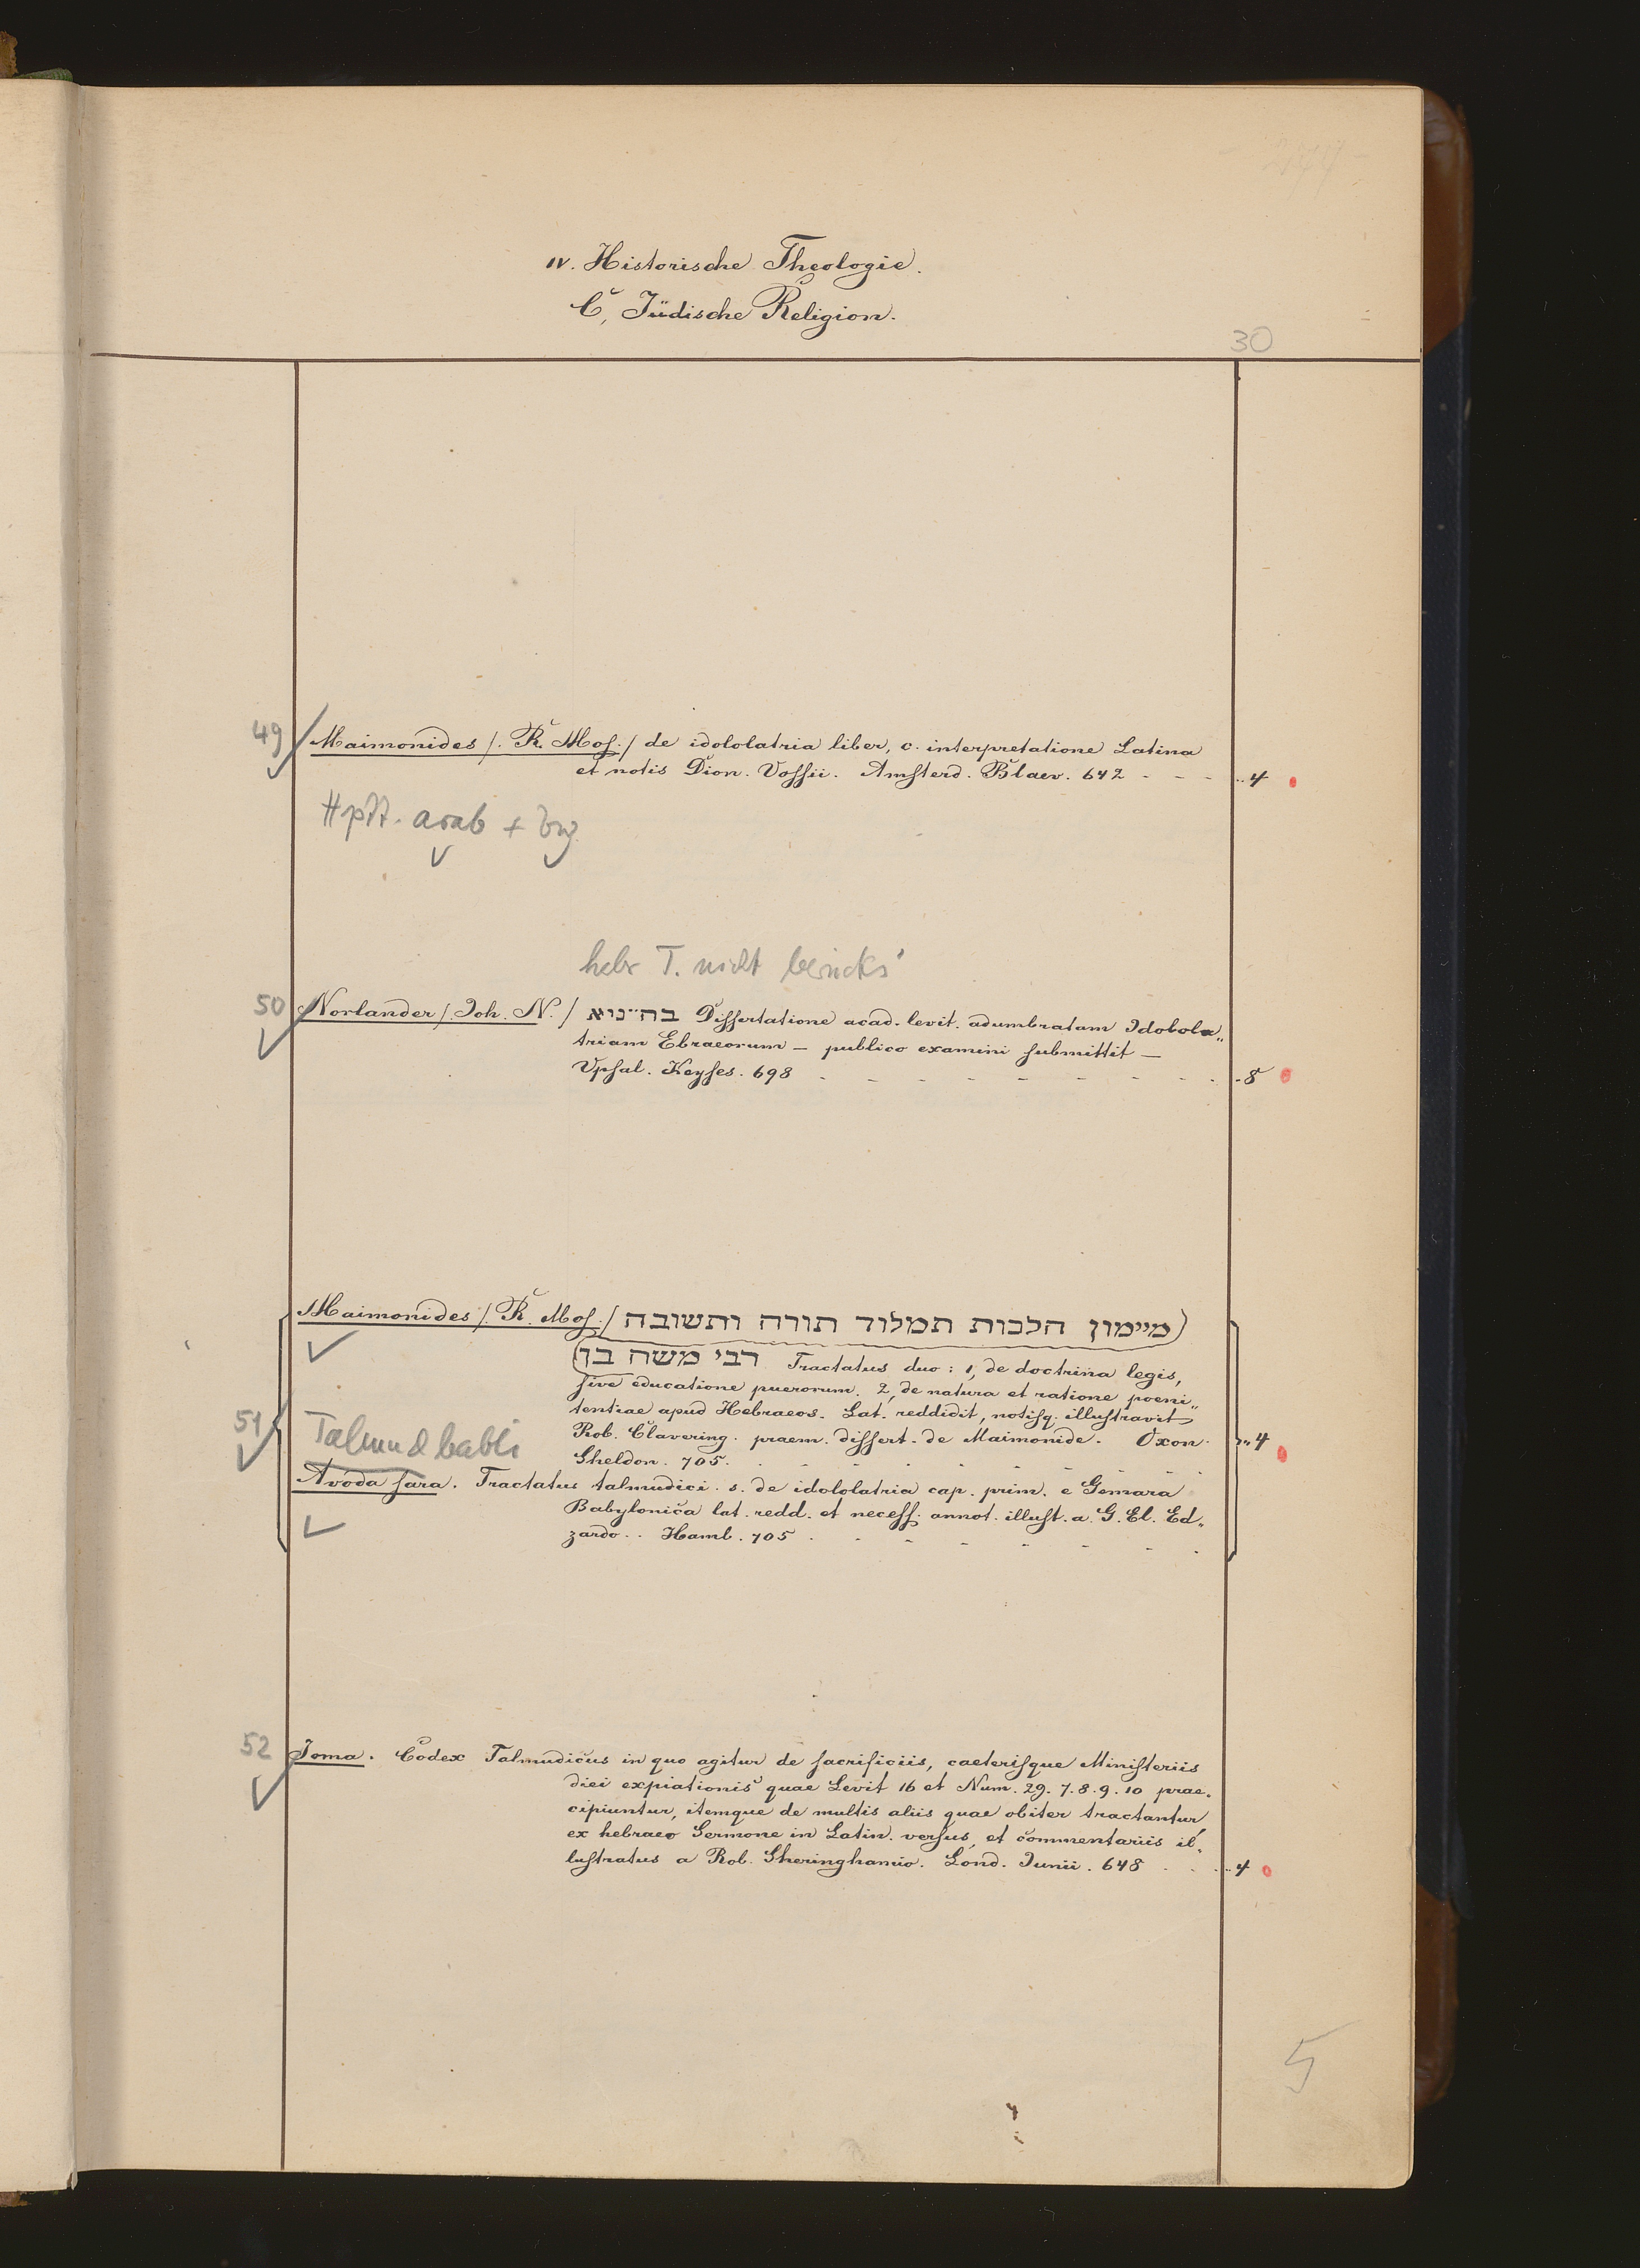 IV. Historische Theologie.
C, Jüdische Religion.
30
49 Maimonides /. R. Mos./ de idololatria liber, c. interpretatione Latina
et notis Dion. Vossii. Amsterd. Blaev. 642 - - - .. 4
arab +
hebr T. nicht
50 Norlander /. Joh. N. / בה״ניא Dissertatione acad. levit. adumbratam Idobola„
triam Ebraeorum — publico examini submittit —
Upsal. Keyses. 698 - - - - - - - . 8
Maimonides /. R. Mos./ מיימון הלכות תמלוד תורה ותשובה)
(רבי משה בן Tractatus duo: 1, de doctrina legis,
sive educatione puerorum. 2, de natura et ratione poeni„
tentiae apud Hebraeos. Lat. reddidit, notisq. illustravit
51 Talmud babli Rob. Clavering. praem. dissert. de Maimonide. Oxon. „ 4
Sheldon. 705. - - - - - - -
Avoda sara. Tractatus talmudici. s. de idololatria cap. prim. e Gemara
Babylonica lat. redd. et necess. annot. illust. a. G. El. Ed„
zardo.. Hamb. 705 . - - - - - - -
52 Joma. Codex Talmudicus in quo agitur de sacrificiis, caeterisque Ministeriis
diei expiationis quae Levit 16 et Num. 29. 7. 8. 9. 10 prae„
cipiuntur, itemque de multis aliis quae obiter tractantur,
ex hebraeo Sermone in Latin. versus, et commentariis il„
lustratus a Rob. Sheringhamio. Lond. Junii. 648 . . .. 4
5